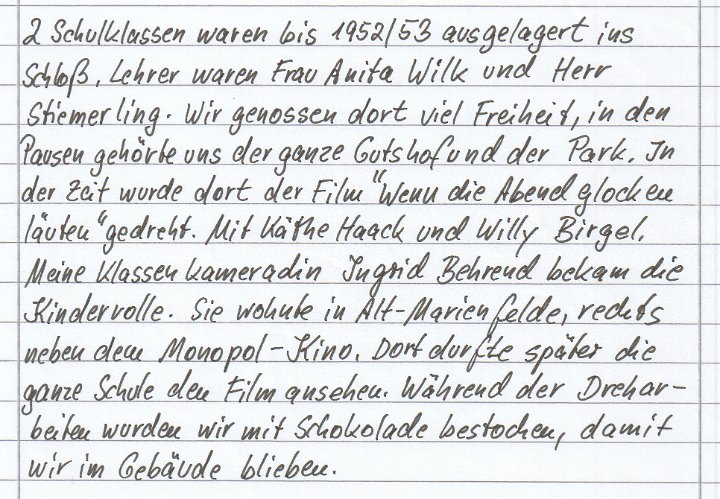 2 Schulklassen waren bis 1952/53 ausgelagert ins
Schloß, Lehrer waren Frau Anita Wilk und Herr
Stiemerling. Wir genossen dort viel Freiheit, in den
Pausen gehörte uns der ganze Gutshof und der Park. In
der Zeit wurde dort der Film "Wenn die Abendglocken
läuten" gedreht. Mit Käthe Haack und Willy Birgel.
Meine Klassenkameradin Ingrid Behrend bekam die
Kinderrolle. Sie wohnte in Alt-Marienfelde, rechts
neben dem Monopol-Kino. Dort durfte später die
ganze Schule den Film ansehen. Während der Drehar-
beiten wurden wir mit Schokolade bestochen, damit
wir im Gebäude blieben.